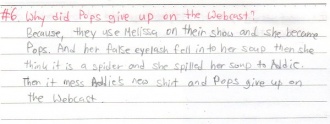 #6. Why did Pops give up on the Webcast?
Because, they use Melissa on their show and she became
Pops. And her false eyelash fell in to her soup then she
think it is a spider and she spilled her soup to Addie.
Then it mess Addie's new shirt and Pops give up on
the Webcast.